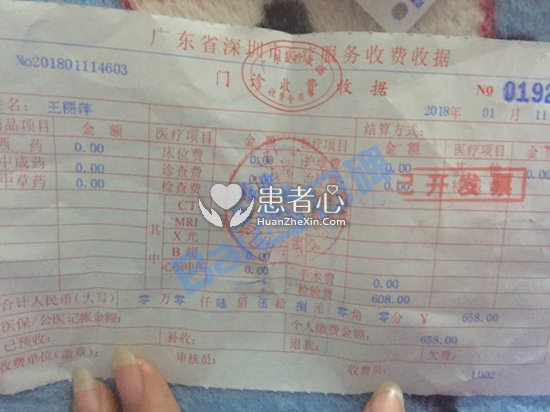 广东省深圳市医疗服务收费收据
No201801114603
门诊收费收据
No 0192
2018年 01月 11
姓名: 王丽萍
药品项目 金额 医疗项目 金额 医疗项目 金额 结算方式:
西药 0.00 床位费 0.00 护理费 0.00 0.00
中成药 0.00 诊查费 0.00 0.00
中草药 0.00 检查费 0.00
已开发票
其中 CT
MRI
X光
B超
心脑电图 0.00 手术费 0.00
检验费 608.00
合计人民币(大写) 零万零仟陆佰伍拾捌元零角零分 ¥ 658.00
医保/公医记帐金额: 个人缴费金额: 658.00
已预收: 补收: 退款: 欠费:
收费单位(盖章): 审核员: 收费员: L002
患者心
HuanZheXin.Com